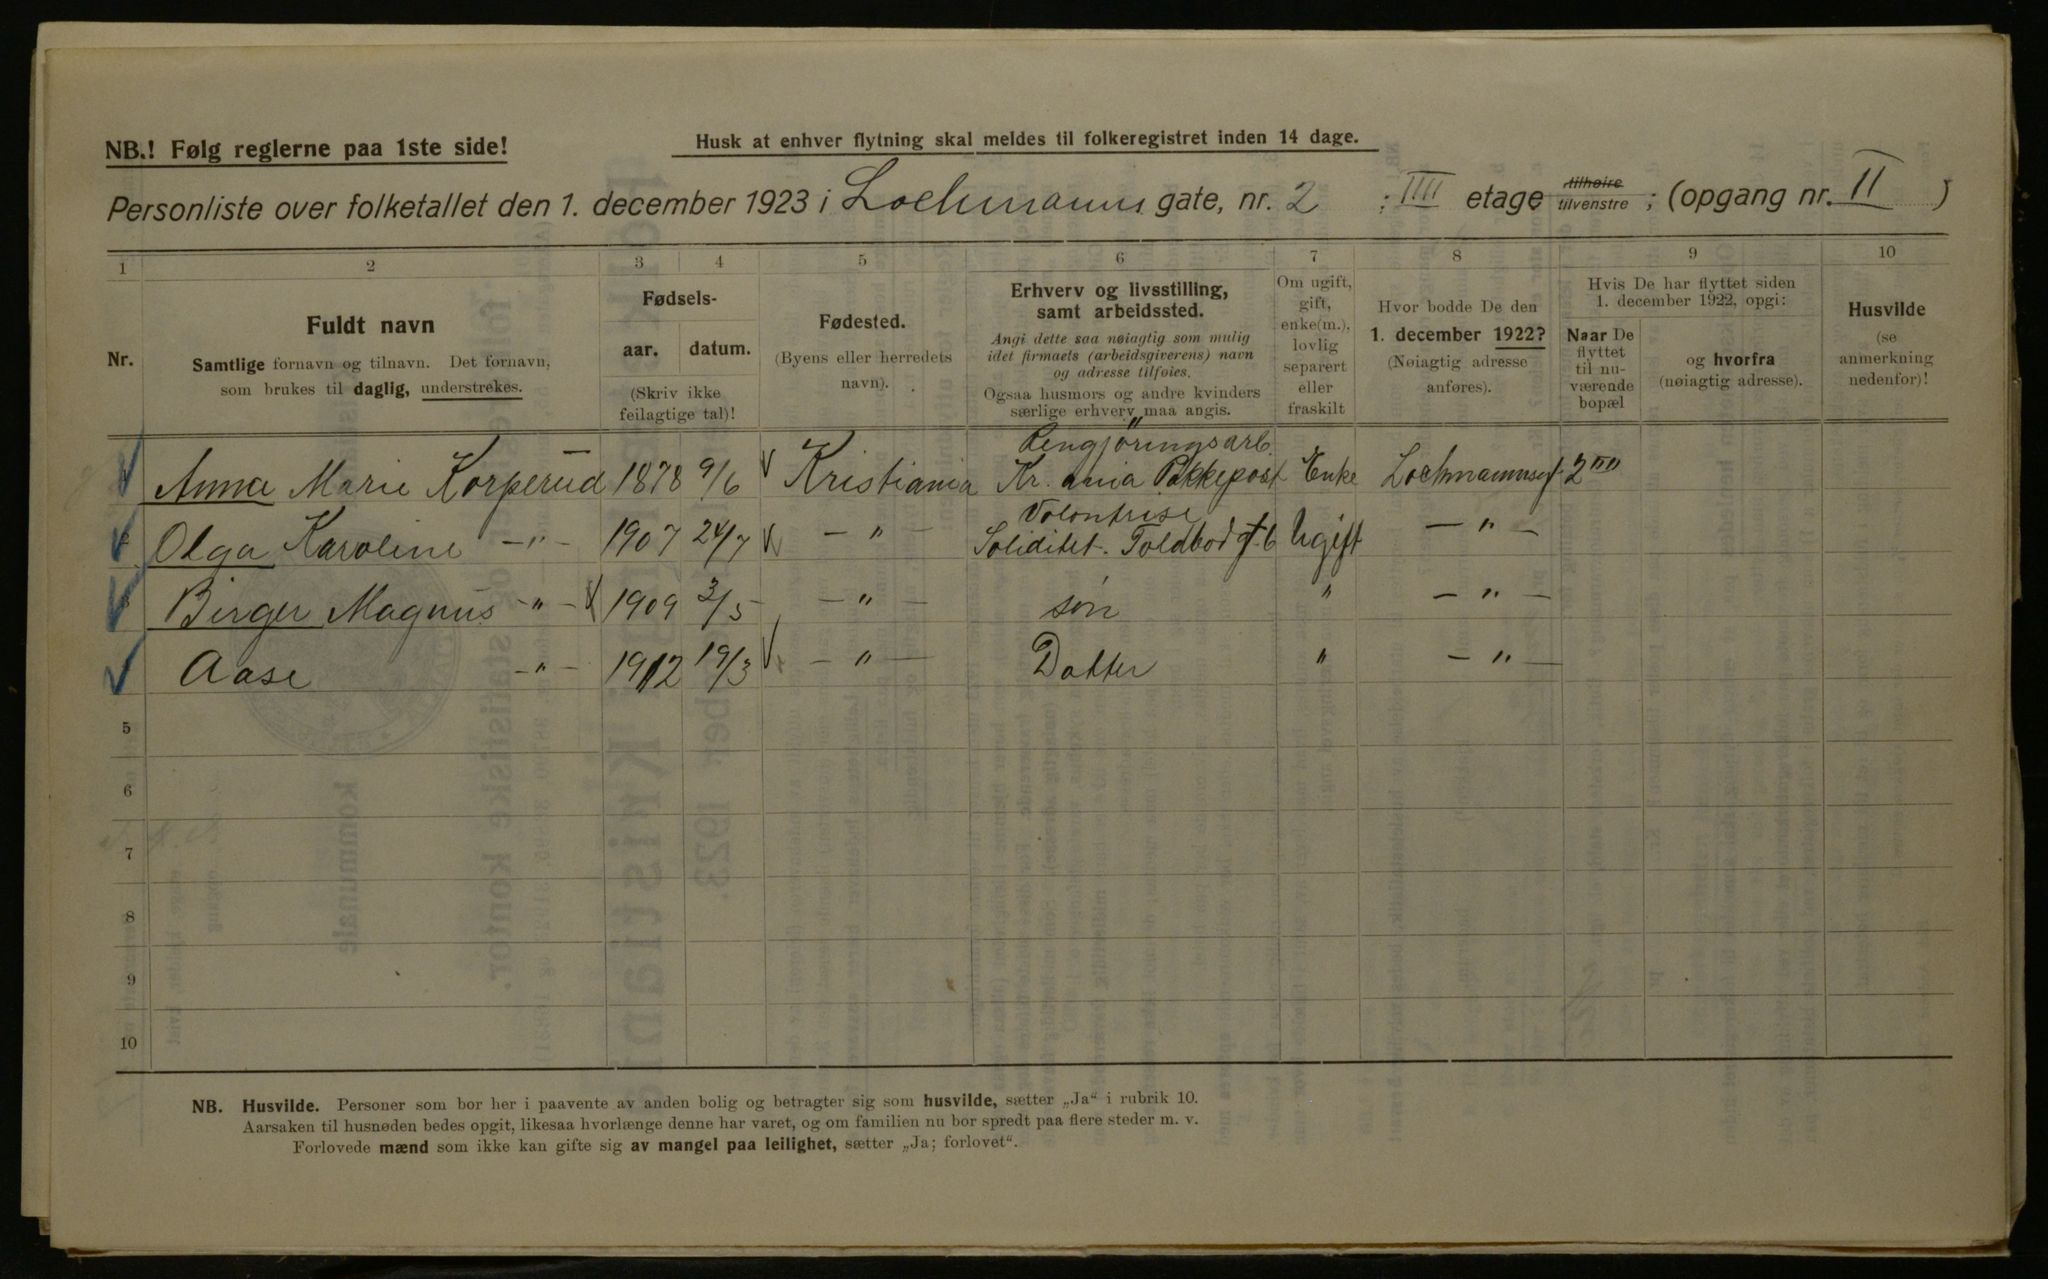 NB.! Følg reglerne paa 1ste side!
Husk at enhver flytning skal meldes til folkeregistret inden 14 dage.
Personliste over folketallet den 1. december 1923 i Lochmanns gate, nr. 2 ; IIII etage tilhøire tilvenstre ; (opgang nr. II )
1 2 3 4 5 6 7 8 9 10
Nr.
Fuldt navn
Samtlige fornavn og tilnavn. Det fornavn,
som brukes til daglig, understrekes.
Fødsels-
aar. datum.
(Skriv ikke
feilagtige tal)!
Fødested.
(Byens eller herredets
navn).
Erhverv og livsstilling,
samt arbeidssted.
Angi dette saa nøiagtig som mulig
idet firmaets (arbeidsgiverens) navn
og adresse tilføies.
Ogsaa husmors og andre kvinders
særlige erhverv maa angis.
Om ugift,
gift,
enke(m.),
lovlig
separert
eller
fraskilt
Hvor bodde De den
1. december 1922?
(Nøiagtig adresse
anføres).
Hvis De har flyttet siden
1. december 1922, opgi:
Naar De
flyttet
til nu-
værende
bopæl
og hvorfra
(nøiagtig adresse).
Husvilde
(se
anmerkning
nedenfor)!
Rengjöringsarb.
Anna Marie Korperud 1878 9/6 Kristiania Kr.ania Pakkepost Enke Lochmannsgt. 2 IIII
Volontrise
Olga Karoline -"- 1907 24/7 -"- Soliditet. Toldbodgt. 6 Ugift -"-
Birger Magnus -"- 1909 3/5 -"- søn " -"-
Aase -"- 1912 19/3 -"- Datter " -"-
5
6
7
8
9
10
NB. Husvilde. Personer som bor her i paavente av anden bolig og betragter sig som husvilde, sætter „Ja“ i rubrik 10.
Aarsaken til husnøden bedes opgit, likesaa hvorlænge denne har varet, og om familien nu bor spredt paa flere steder m. v.
Forlovede mænd som ikke kan gifte sig av mangel paa leilighet, sætter „Ja; forlovet“.